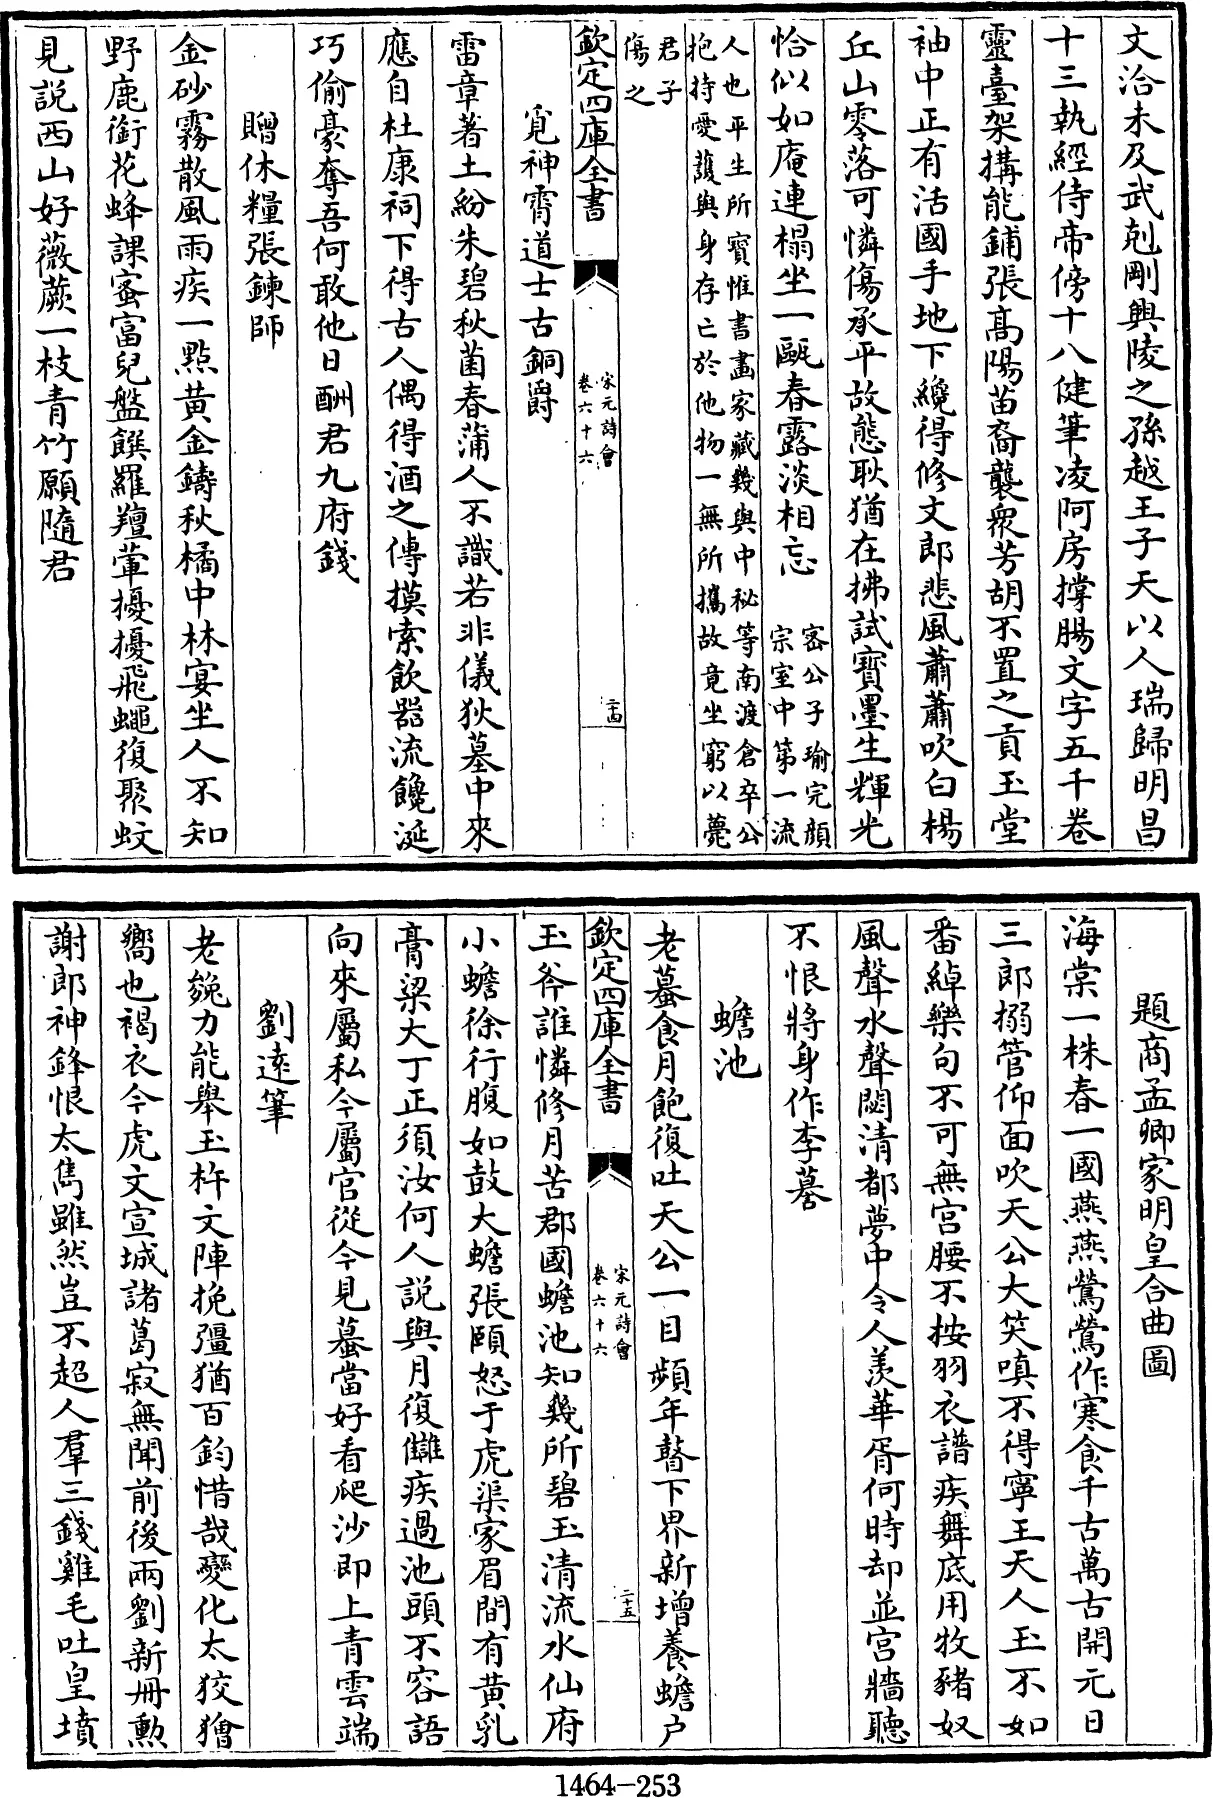 文洽未及武剋剛興陵之孫越王子天以人瑞歸明昌
十三執經侍帝傍十八健筆凌阿房撐腸文字五千卷
靈臺架構能鋪張高陽苗裔襲衆芳胡不置之貢玉堂
袖中正有活國手地下纔得修文郎悲風蕭蕭吹白楊
丘山零落可憐傷承平故態耿猶在拂試寳墨生輝光
恰似如庵連榻坐一甌春露淡相忘
宻公子瑜完顔
宗室中第一流
人也平生所寳惟書畫家藏幾與中秘等南渡倉卒公
抱持愛護與身存亡於他物一無所攜故竟坐窮以薨
君子
傷之
欽定四庫全書
宋元詩會
卷六十六
二十四
覓神霄道士古銅爵
雷章著土紛朱碧秋菌春蒲人不識若非儀狄墓中來
應自杜康祠下得古人偶得酒之傳摸索飲器流饞涎
巧偷豪奪吾何敢他日酬君九府錢
贈休糧張鍊師
金砂霧散風雨疾一點黄金鑄秋橘中林宴坐人不知
野鹿銜花蜂課蜜富兒盤饌羅羶葷擾擾飛蠅復聚蚊
見説西山好薇蕨一枝青竹願隨君
題商孟卿家明皇合曲圖
海棠一株春一國燕燕鶯鶯作寒食千古萬古開元日
三郎搊管仰面吹天公大笑嗔不得寧王天人玉不如
番綽樂句不可無宫腰不按羽衣譜疾舞底用牧豬奴
風聲水聲閟清都夢中令人羨華胥何時却並宫牆聽
不恨將身作李謩
蟾池
老蟇食月飽復吐天公一目頻年瞽下界新增養蟾户
欽定四庫全書
宋元詩會
卷六十六
二十五
玉斧誰憐修月苦郡國蟾池知幾所碧玉清流水仙府
小蟾徐行腹如鼓大蟾張頤怒于虎渠家眉間有黄乳
膏粱大丁正須汝何人説與月復讎疾過池頭不容語
向來屬私今屬官從今見蟇當好看爬沙即上青雲端
劉遠筆
老㕙力能舉玉杵文陣挽彊猶百鈞惜哉變化太狡獪
嚮也褐衣今虎文宣城諸葛寂無聞前後兩劉新册勲
謝郎神鋒恨太雋雖然豈不超人羣三錢雞毛吐皇墳
1464-253